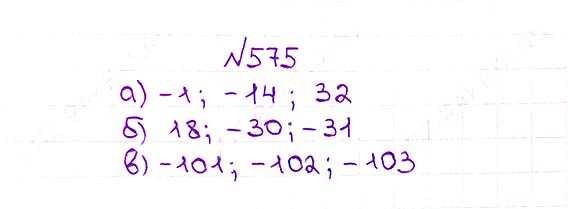 №575
а) -1; -14; 32
б) 18; -30; -31
в) -101; -102; -103